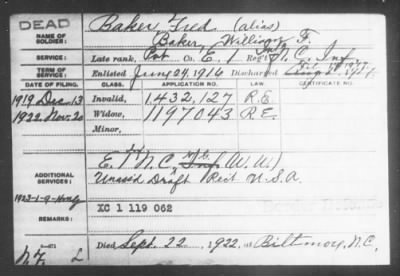 DEAD
Baker Fred (alias)
NAME OF SOLDIER:
Baker, William F.
SERVICE:
Late rank, Pvt Co. E, 1 Reg't N. C. Inf
TERM OF SERVICE:
Enlisted June 24, 1916 Discharged
DATE OF FILING. CLASS. APPLICATION NO. LAW. CERTIFICATE NO.
1919 Dec. 13 Invalid, 1,432,127 R.E.
1922 Nov. 20 Widow, 1197043 R.E.
Minor,
ADDITIONAL SERVICES:
E 1st N.C. Inf (W.W.)
Unass'd Draft Rect U.S.A.
XC 1 119 062
Died Sept. 22, 1922, at Biltmore, N.C.